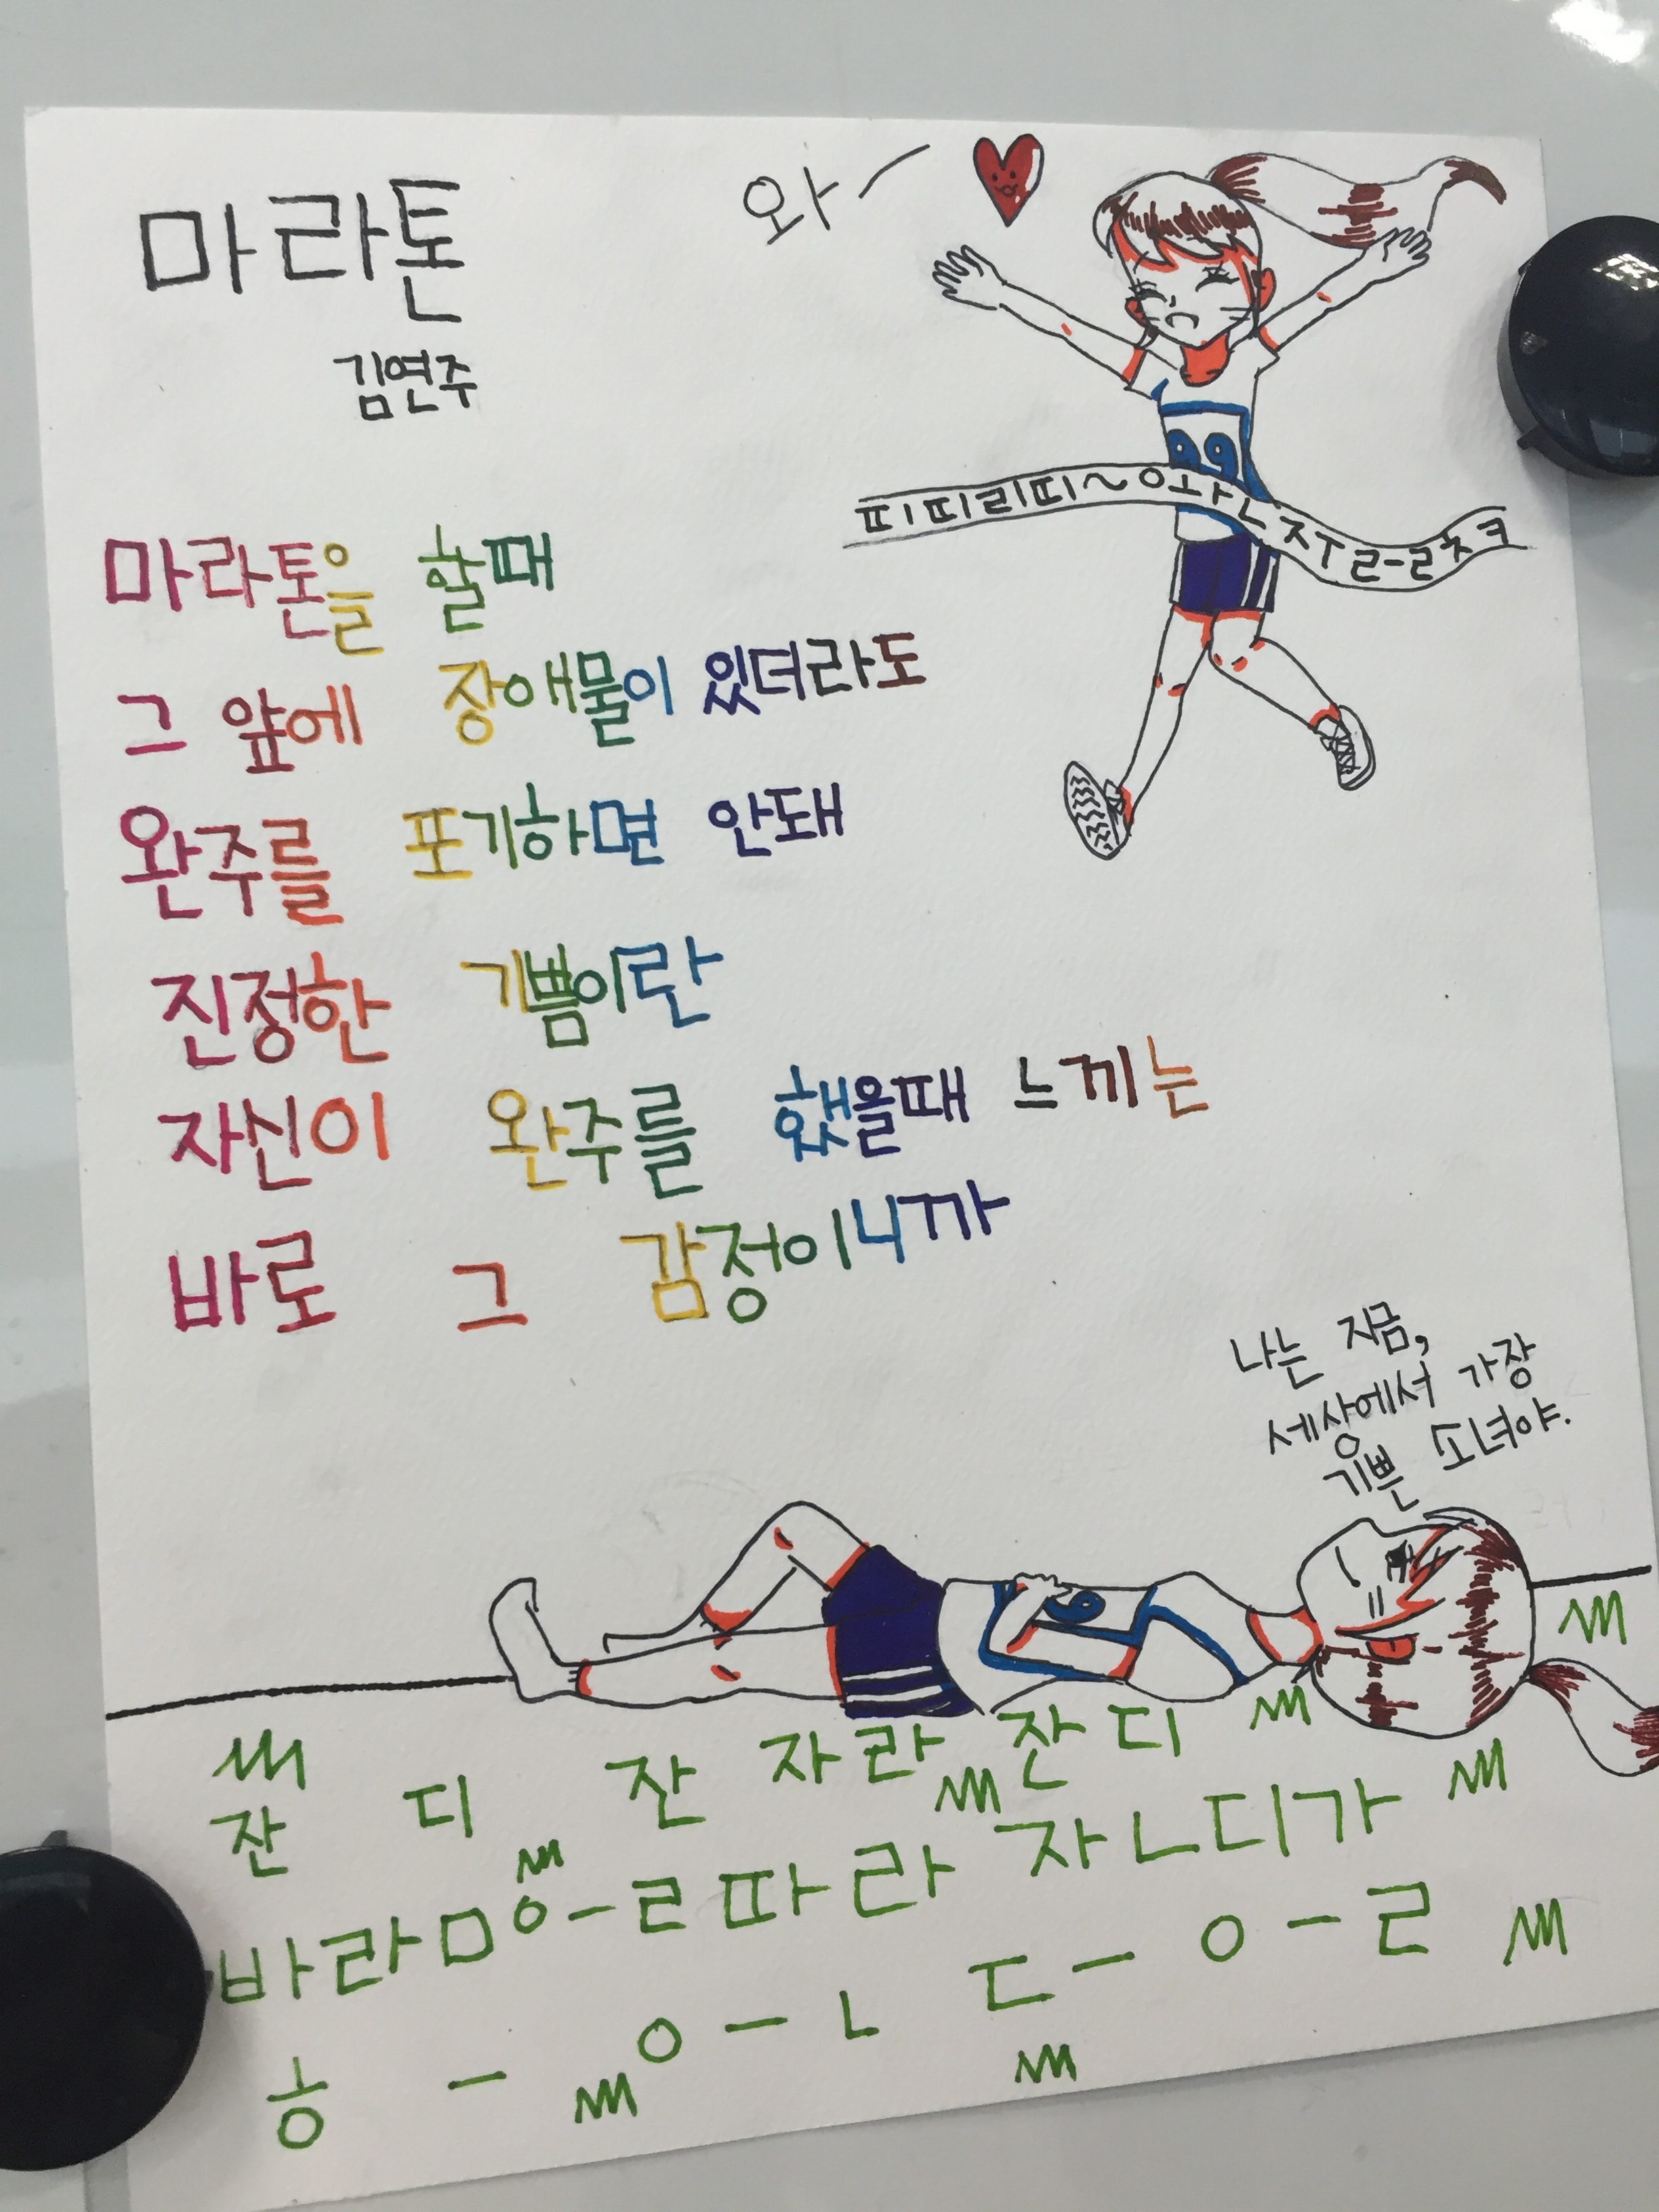 마라톤
와
김연주
피띠리띠~ㅇㅘㄴㅈㅜㄹㅡㄹㅊㅋ
마라톤을 할때
그 앞에 장애물이 있더라도
완주를 포기하면 안돼
진정한 기쁨이란
자신이 완주를 했을때 느끼는
바로 그 감정이니까
나는 지금,
세상에서 가장
기쁜 소녀야.
잔 디 잔 자라 잔 디
바라ㅁㅇㅡㄹ따라 자ㄴ디가
흐 ㅡ ㅇㅡㄴ ㄷㅡㅇㅡㄹ